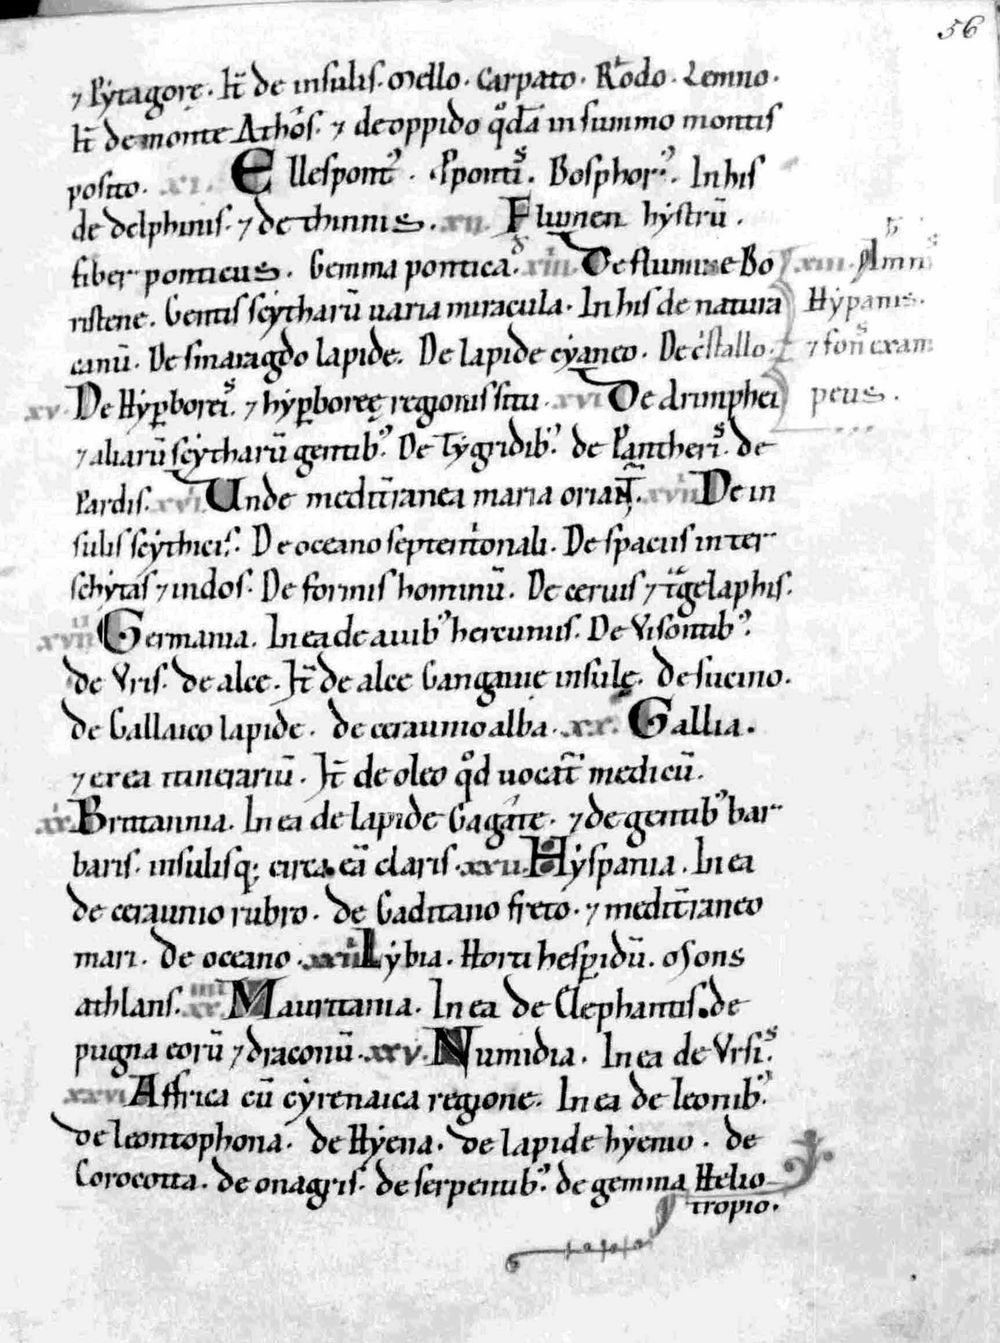 56
⁊ Pẏtagorę. It̄ de insulis. Mello. Carpato. Rodo. Lemno.
It̄ de monte Athos. ⁊ de oppido qͦdā in summo montis
posito. xi. Ellespontꝰ. Ꝓpontis. Bosphorꝰ. In his
de delphinis. ⁊ de thinnis. xii. Flumen hẏstrū.
fiber ponticus. Gemma pontica. xiii. De flumine Bo
ristene. Gentis scẏtharū uaria miracula. In his de natura
canū. De smaragdo lapide. De lapide cẏaneo. De cͥstallo.
xiiii. Amnis
Hẏpanis.
⁊ fons exam
peus.
xv. De Hẏꝑboreis. ⁊ hẏꝑboreę regionis situ. xvi De arimphei
⁊ aliarū scẏtharū gentibꝰ. De Tẏgridibꝰ. de Pantheris. de
Pardis. xvi. Unde medit̄ranea maria orianť. xvii De in
sulis scẏthicis. De oceano septentͥonali. De spaciis inter
schẏtas ⁊ indos. De formis hominū. De ceruis ⁊ tͣgelaphis.
xviii Germania. In ea de auibꝰ hercuniis. De Visontibꝰ.
de Vris. de alce. It̄ de alce Gangauie insulę. de sucino.
de Gallaico lapide. de ceraunio alba. xx. Gallia.
⁊ ex ea itinerariū. It̄ de oleo qͦd uocat̄ medicū.
xx. Brittannia. In ea de lapide Gagate. ⁊ de gentibꝰ bar
baris. insulisq; circa eā claris. xxii. Hẏspania. In ea
de ceraunio rubro. de Gaditano freto. ⁊ medit̄raneo
mari. de oceano. xxiii Lẏbia. Horti hesꝑidū. Mons
athlans. xxiiii Mauritania. In ea de Elephantis. de
pugna eorū ⁊ draconū. xxv. Numidia. In ea de Vrsis.
xxvi Affrica cū cẏrenaica regione. In ea de leonibꝰ.
de leontophona. de Hẏena. de lapide hẏenio. de
Corocotta. de onagris. de serpentibꝰ. de gemma Helio
tropio.